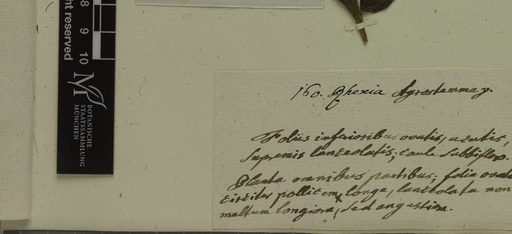 nt reserved
8 9 10
M
BOTANISCHE
STAATSSAMMLUNG
MÜNCHEN
160. Rhexia
Foliis inferioribus ovatis, acutis,
supremis lanceolatis; caule subbifloro.
Planta omnibus partibus; folia ovata
pollicem longa, lanceolata non
multum longiora, sed angustiora.